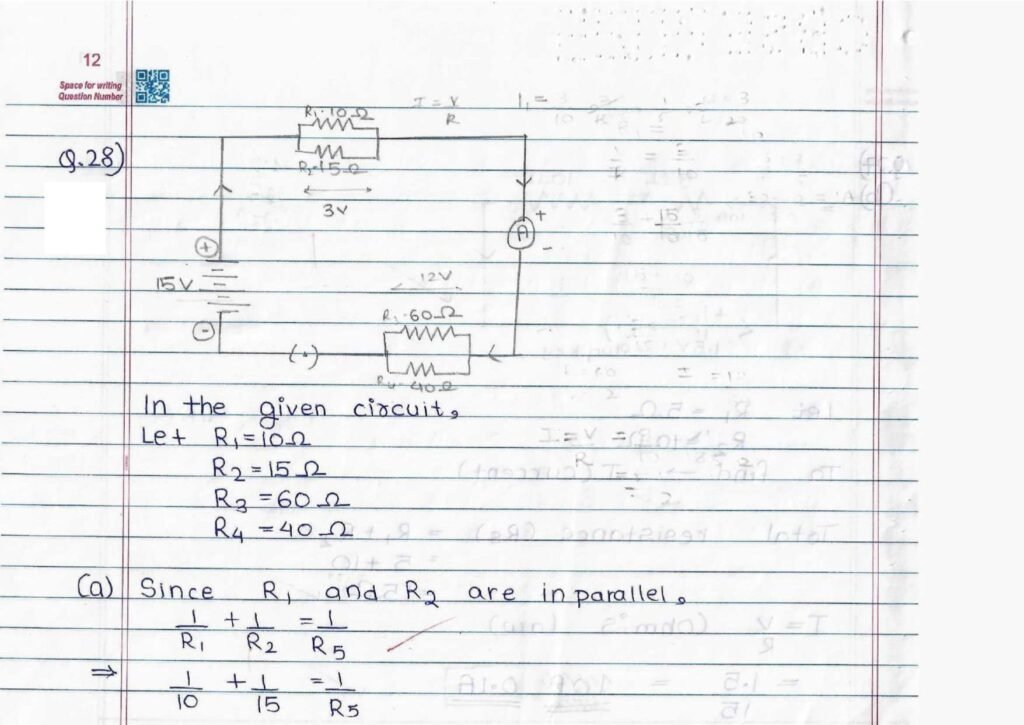 12
Space for writing
Question Number
I = V
R
R₁·10Ω
Q.28)
R₂·15Ω
3V
+
A
-
+
15V
12V
R₃·60Ω
-
(·)
R₄·40Ω
In the given circuit,
Let R₁ = 10Ω
R₂ = 15Ω
R₃ = 60Ω
R₄ = 40Ω
(a) Since R₁ and R₂ are in parallel,
1/R₁ + 1/R₂ = 1/R₅
⇒ 1/10 + 1/15 = 1/R₅